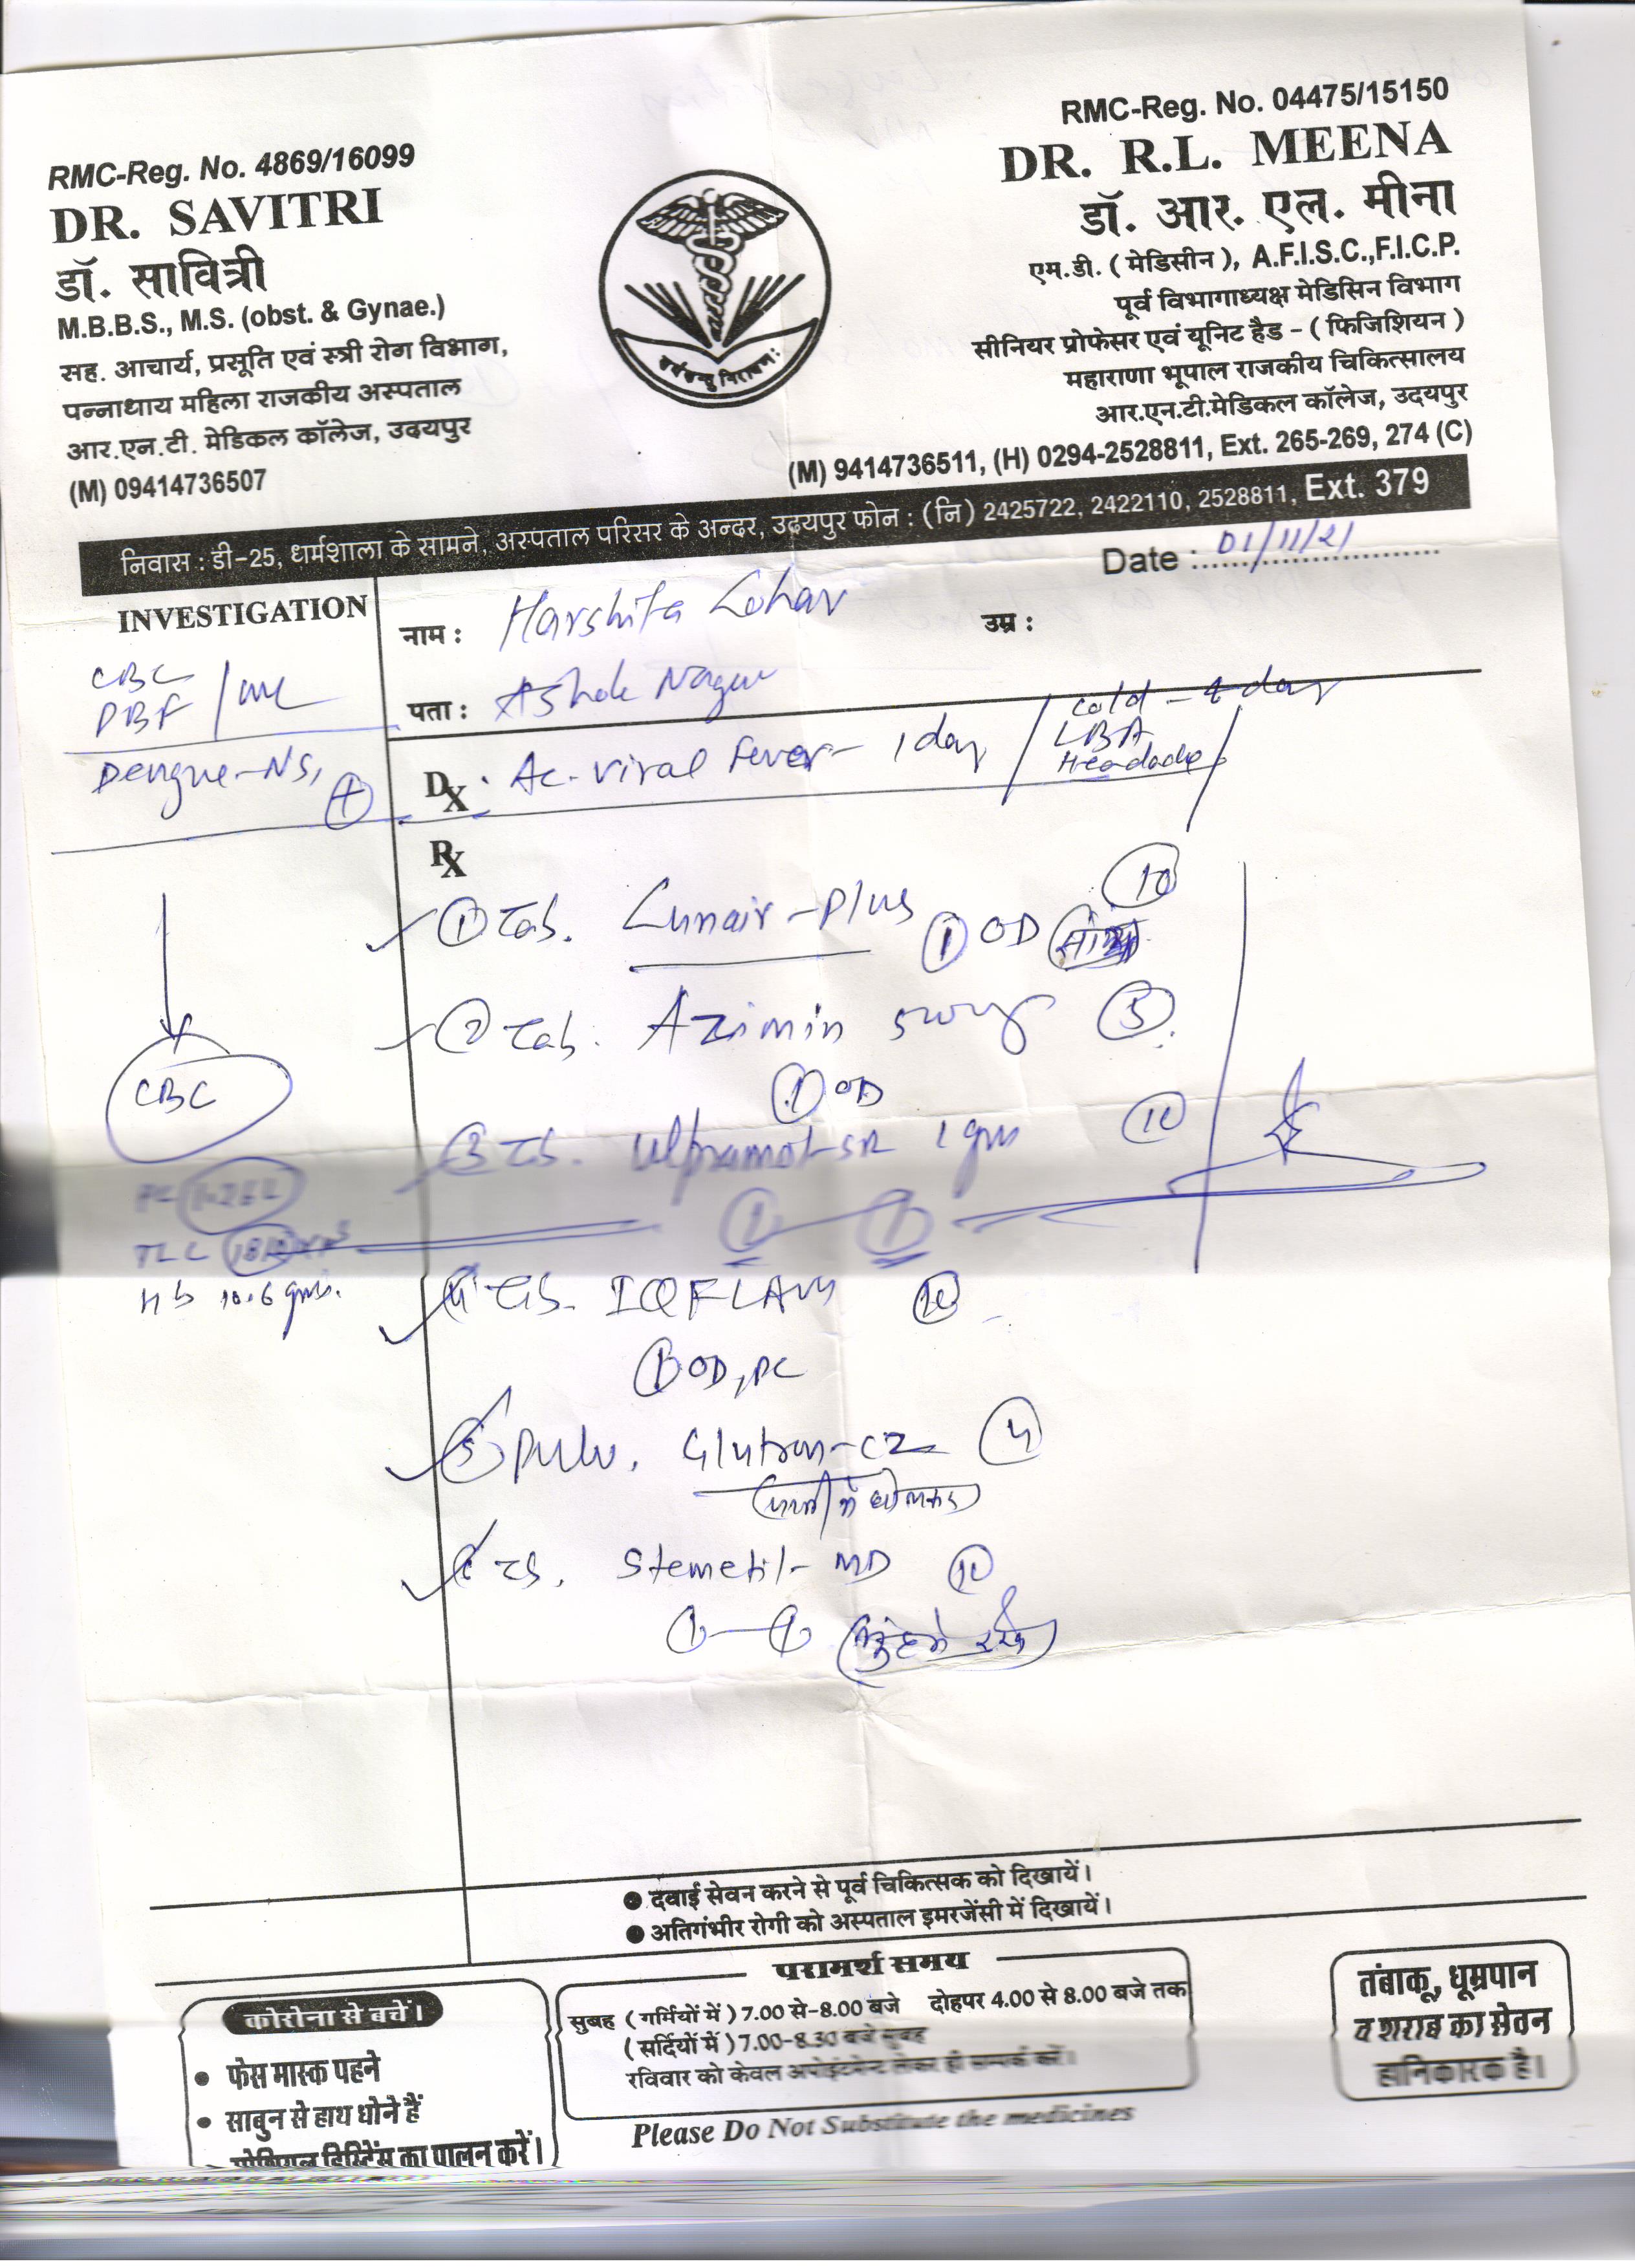 RMC-Reg. No. 4869/16099
DR. SAVITRI
डॉ. सावित्री
M.B.B.S., M.S. (obst. & Gynae.)
सह. आचार्य, प्रसूति एवं स्त्री रोग विभाग,
पन्नाधाय महिला राजकीय अस्पताल
आर.एन.टी. मेडिकल कॉलेज, उदयपुर
(M) 09414736507
सर्वे सन्तु निरामयाः
RMC-Reg. No. 04475/15150
DR. R.L. MEENA
डॉ. आर. एल. मीना
एम.डी. ( मेडिसीन ), A.F.I.S.C.,F.I.C.P.
पूर्व विभागाध्यक्ष मेडिसिन विभाग
सीनियर प्रोफेसर एवं यूनिट हैड - ( फिजिशियन )
महाराणा भूपाल राजकीय चिकित्सालय
आर.एन.टी.मेडिकल कॉलेज, उदयपुर
(M) 9414736511, (H) 0294-2528811, Ext. 265-269, 274 (C)
निवास : डी-25, धर्मशाला के सामने, अस्पताल परिसर के अन्दर, उदयपुर फोन : (नि) 2425722, 2422110, 2528811, Ext. 379
Date : 01/11/21
INVESTIGATION
CBC
PBF
Dengue-NS1 +
CBC
TLC
Hb 10.6 gm.
नाम : Harshita Lohar उम्र :
पता : Ashok Nagar
Dx . Ac. Viral Fever - 1 day
Cold - day
LBA
Headache
Rx
① Tab. Lunair-Plus 10
① OD
② Tab. Azimin 500 5
① OD
③ Tab. 1 gm 10
① ①
④ Tab. IQFLAM 10
① OD, PC
⑤ Pulv. Glutron-CZ
पानी में घोलकर
Tab. Stemetil-MD 10
① - ① मुंह में रखें
● दवाई सेवन करने से पूर्व चिकित्सक को दिखायें।
● अतिगंभीर रोगी को अस्पताल इमरजेंसी में दिखायें।
कोरोना से बचें।
• फेस मास्क पहने
• साबुन से हाथ धोने हैं
• सोशियल डिस्टेंस का पालन करें।
परामर्श समय
सुबह ( गर्मियों में ) 7.00 से-8.00 बजे दोहपर 4.00 से 8.00 बजे तक
( सर्दियों में ) 7.00-8.30 बजे सुबह
रविवार को केवल अपोइंटमेन्ट लेकर ही सम्पर्क करें।
Please Do Not Substitute the medicines
तंबाकू, धूम्रपान
व शराब का सेवन
हानिकारक है।